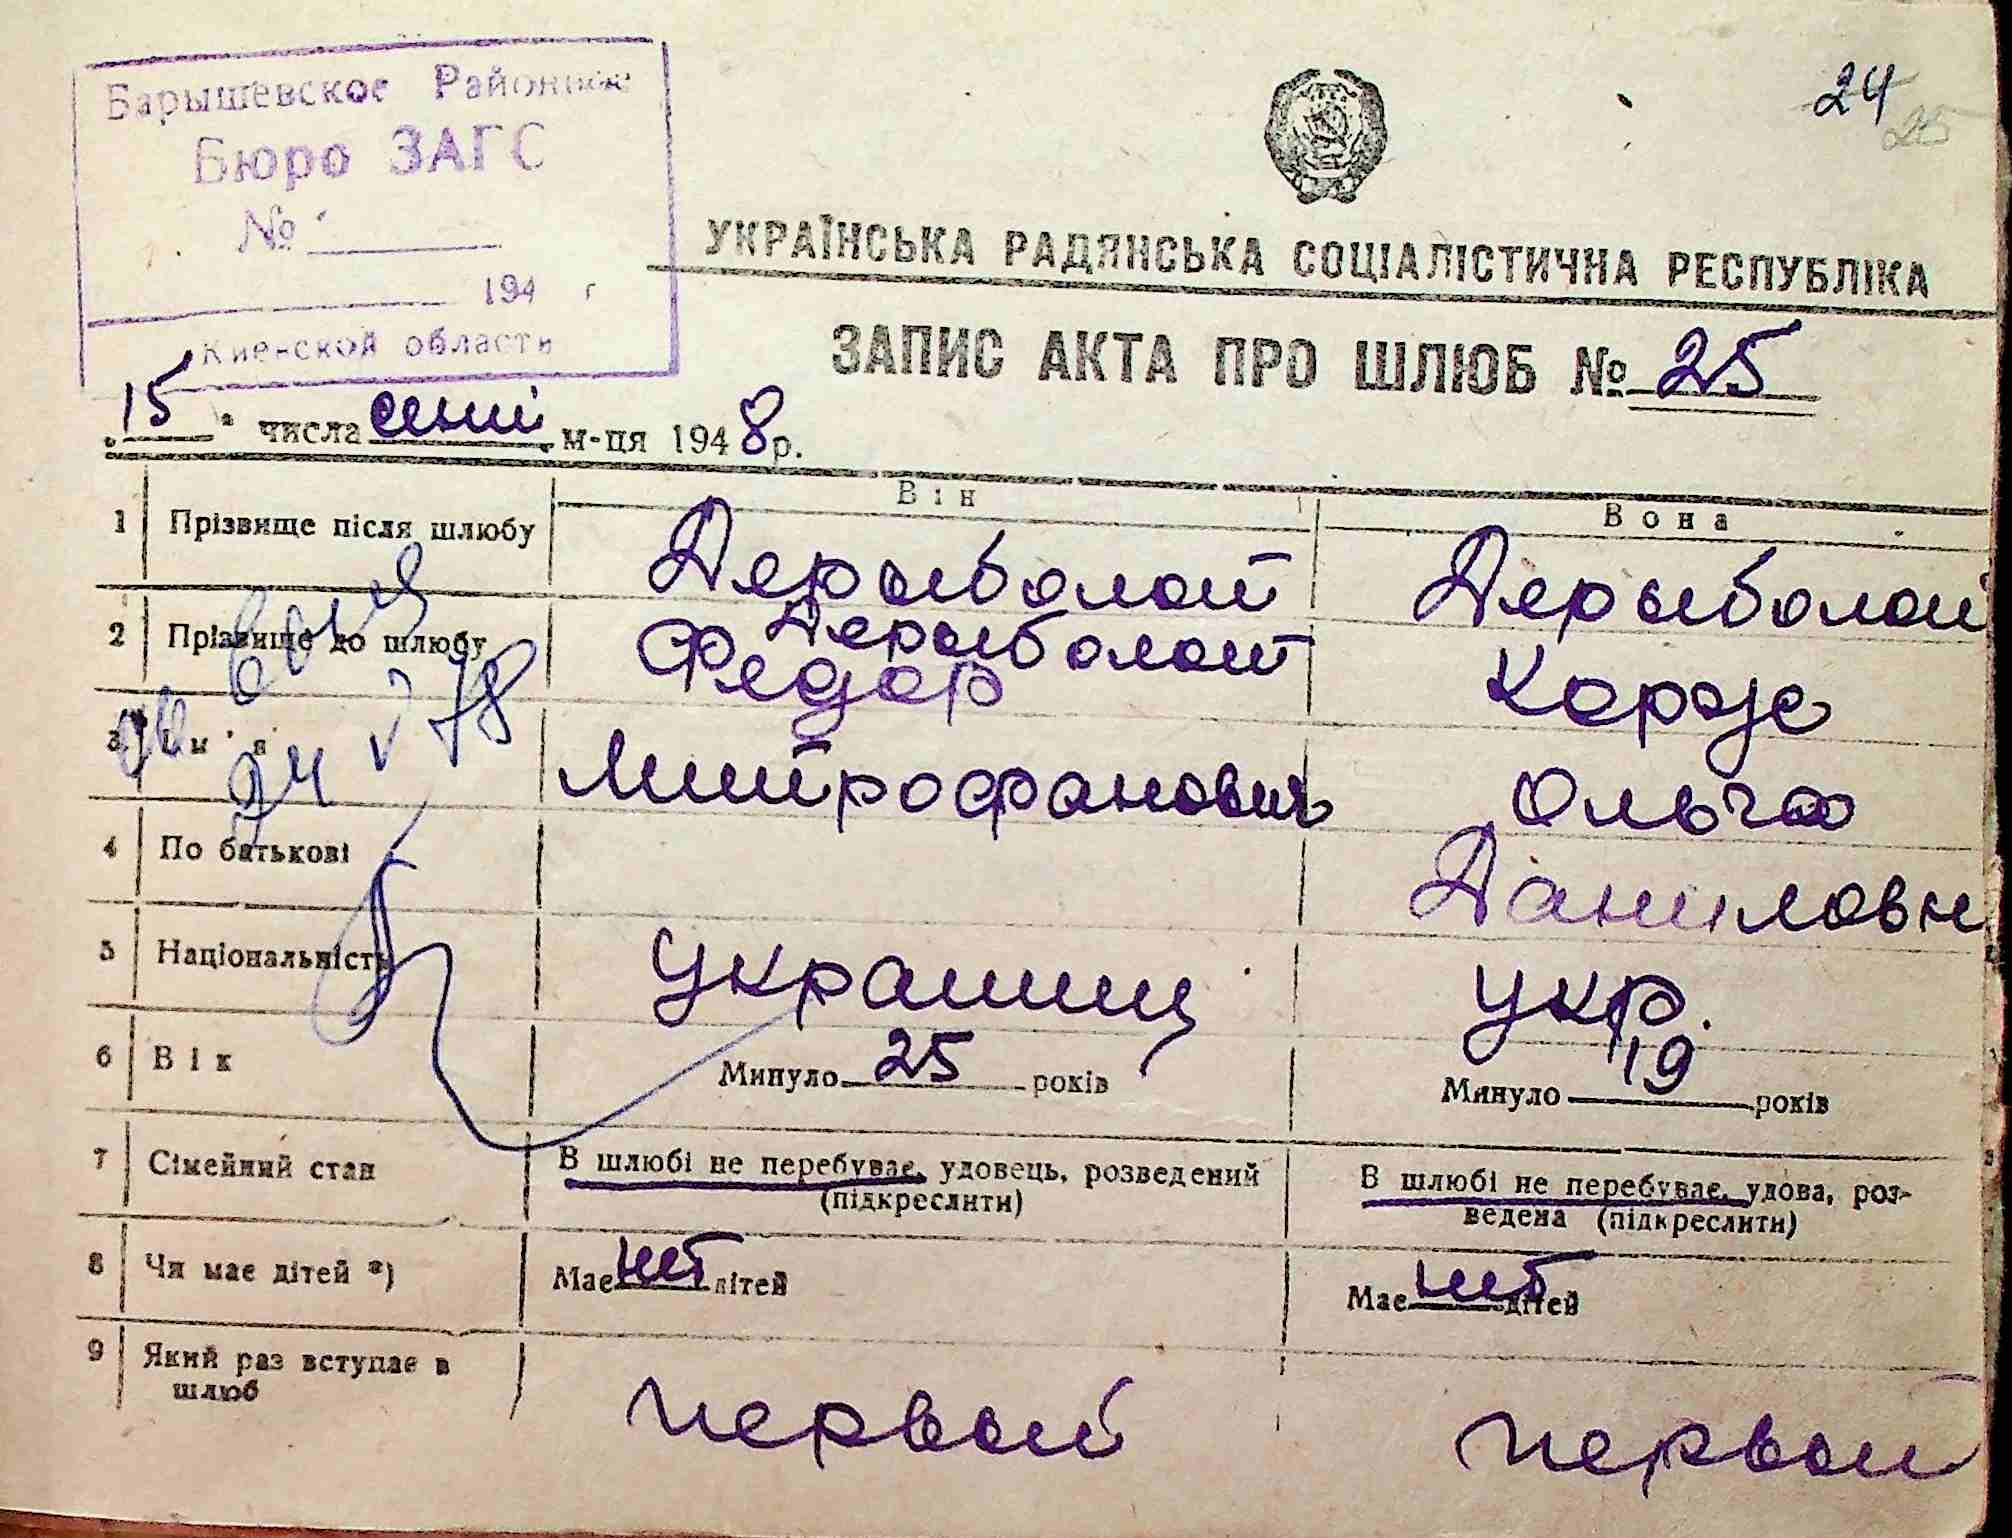 Барышевское Районное
Бюро ЗАГС
№
194 г
Киевской области
24
25
УКРАЇНСЬКА РАДЯНСЬКА СОЦІАЛІСТИЧНА РЕСПУБЛІКА
ЗАПИС АКТА ПРО ШЛЮБ № 25
"15" числа м-ця 1948 р.
Він Вона
1 Прізвище після шлюбу Дерыболот Дерыболот
2 Прізвище до шлюбу Дерыболот Корж
3 Ім'я Федор Ольга
24 V 78
4 По батькові Митрофанович Даниловн
5 Національність Украинец укр.
6 Вік Минуло 25 років Минуло 19 років
7 Сімейний стан В шлюбі не перебуває, удовець, розведений В шлюбі не перебуває, удова, роз-
(підкреслити) ведена (підкреслити)
8 Чи має дітей *) Має нет дітей Має нет дітей
9 Який раз вступає в
шлюб первый первый